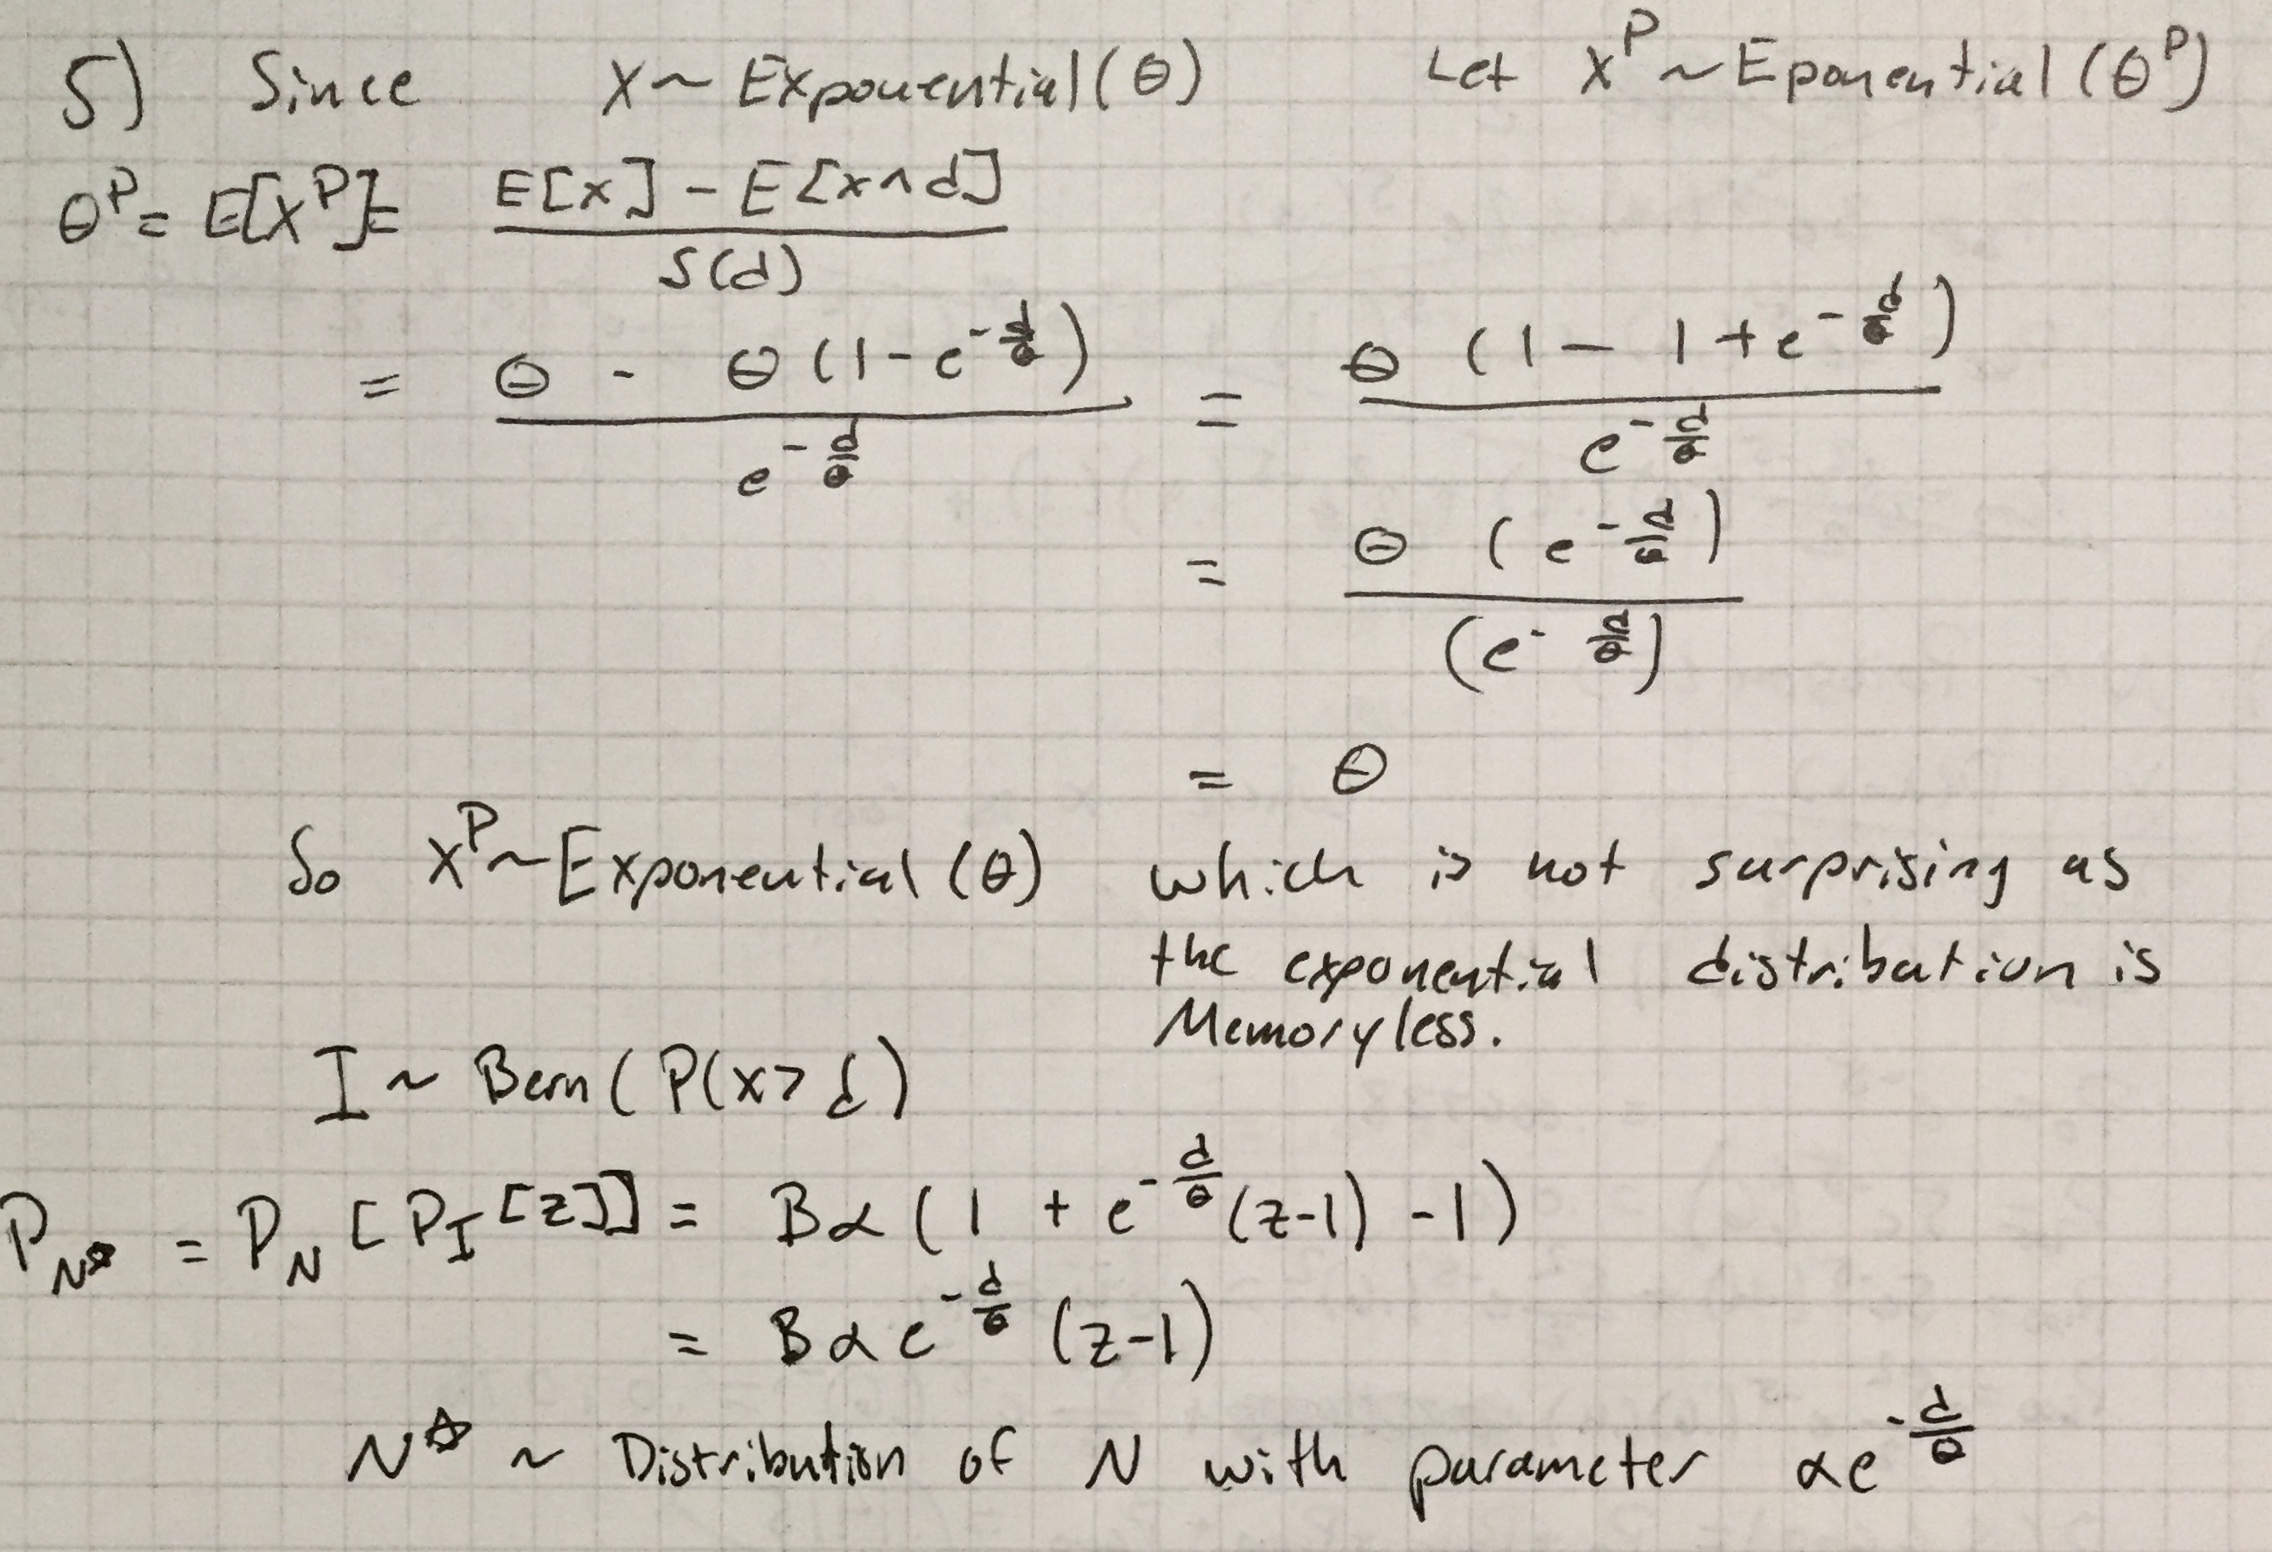 5) Since X ~ Exponential(θ) Let X^P ~ Eponential(θ^P)
θ^P = E[X^P] = (E[x] - E[x∧d]) / S(d)
= (θ - θ(1 - e^{-d/θ})) / e^{-d/θ} = θ(1 - 1 + e^{-d/θ}) / e^{-d/θ}
= θ(e^{-d/θ}) / (e^{-d/θ})
= θ
So X^P ~ Exponential(θ) which is not surprising as
the exponential distribution is
Memoryless.
I ~ Bern(P(x>d)
P_{N☆} = P_N[P_I[z]] = Bα(1 + e^{-d/θ}(z-1) - 1)
= Bαe^{-d/θ}(z-1)
N☆ ~ Distribution of N with parameter αe^{-d/θ}